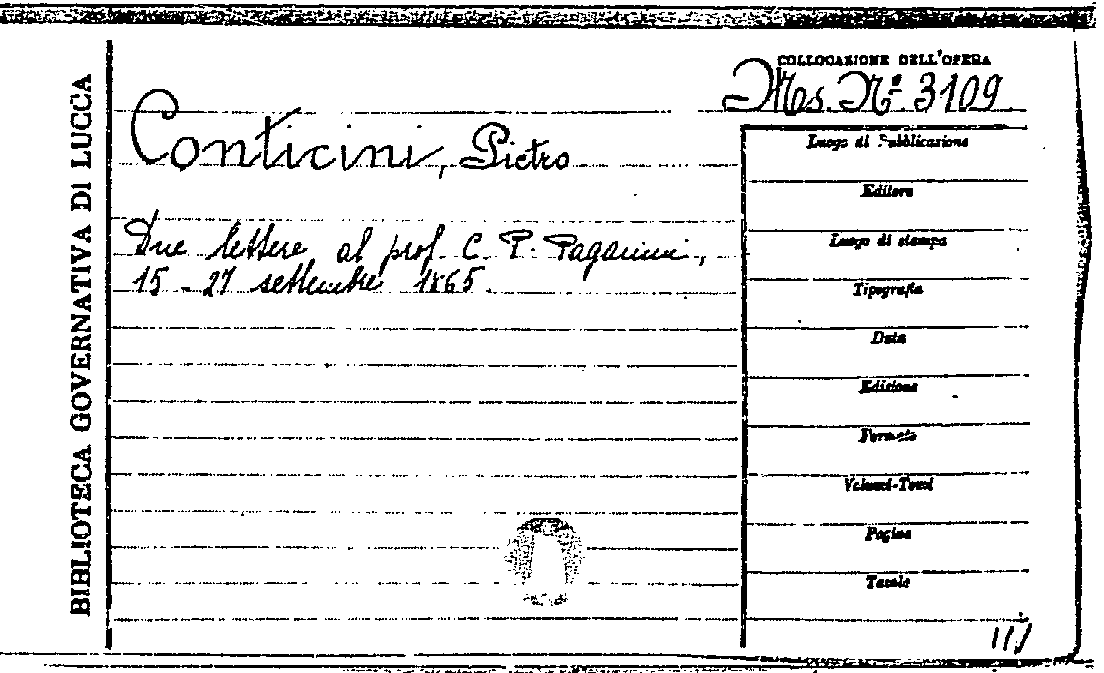 BIBLIOTECA GOVERNATIVA DI LUCCA
COLLOCAZIONE DELL'OPERA
Ms. Nº 3109
Conticini, Pietro
Due lettere al prof. C. P. Paganini,
15 - 27 settembre 1865.
Luogo di Pubblicazione
Editore
Luogo di stampa
Tipografia
Data
Edizione
Formato
Volumi-Tomi
Pagine
Tavole